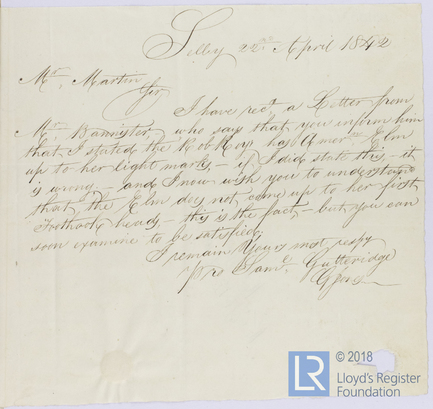 Selby 22nd April 1842
Mr. Martin
Sir
I have recd. a Letter from
Mr. Bannister, who says that you inform him
that I stated the Rob Roy has Amern. Elm
up to her light marks, - if I did state this, - it
is wrong - and I now wish you to understand
that the Elm does not come up to her first
Foothook heads, - this is the fact - but you can
soon examine to be satisfied.
I remain Yours most respy
pr Saml. Gutteridge
© 2018
LR Lloyd's Register
Foundation